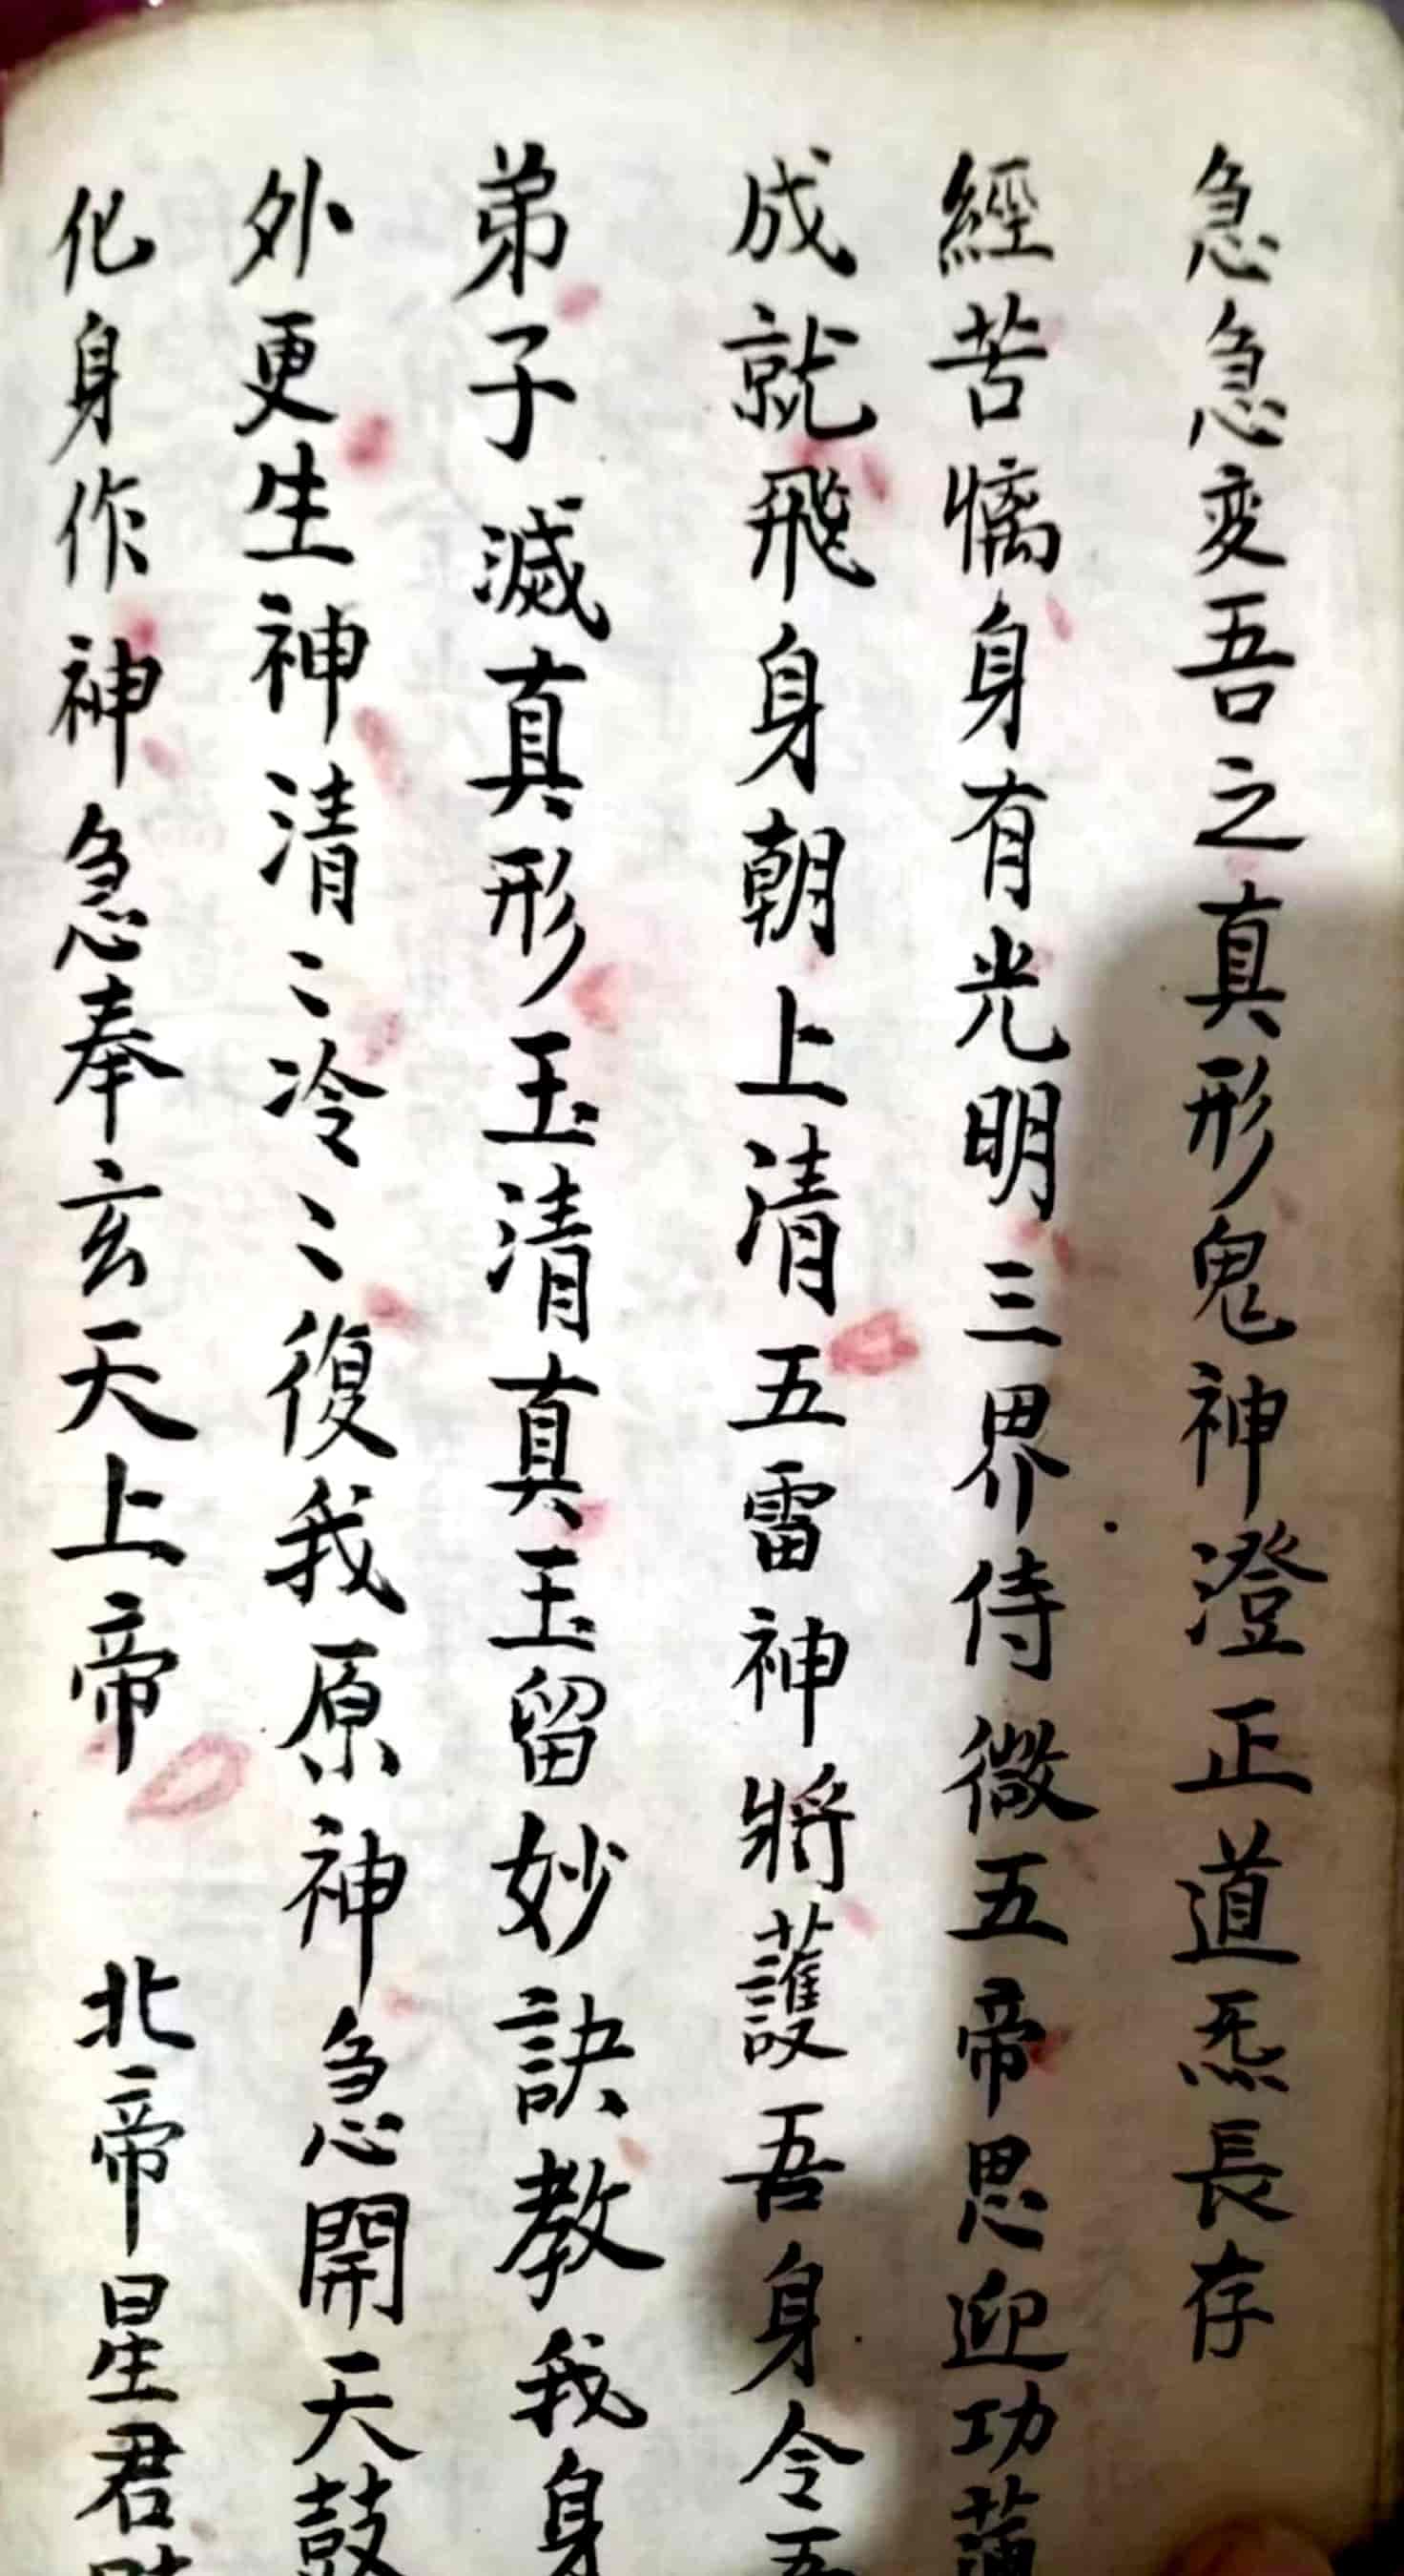 急急変吾之真形鬼神澄正道炁長存
經苦懦身有光明三界侍微五帝思迎功
成就飛身朝上清五雷神將護吾身令吾
弟子滅真形玉清真玉留妙訣教我身
外更生神清〻冷〻復我原神急開天鼓
化身作神急奉玄天上帝 北帝星君